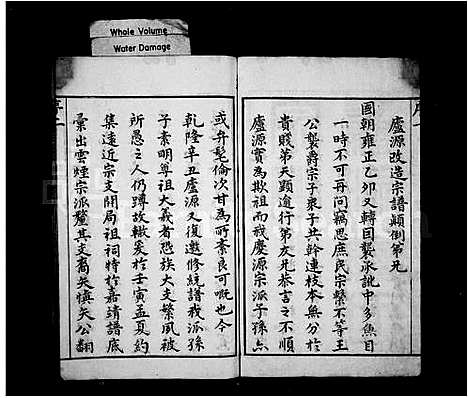 Whole Volume
Water Damage
廬源改造宗譜顛倒弟兄
國朝雍正乙卯又轉目襲承訛中多魚目
一時不可再問竊思庶民宗繫不等王
公襲爵宗子衆子共幹連枝本無分於
貴賤第天顯逾行弟友兄恭言之不順
廬源實為欺祖而我慶源宗派子孫亦
或弁髦倫次甘為所紊良可嘅也今
乾隆辛丑廬源又復邀修統譜我派孫
子素明尊祖大義者恐族大支繁風被
所愚之人仍蹲故轍爰於壬寅孟夏約
集遠近宗支開局祖祠特於嘉靖譜底
彙出雲煙宗派釐其支裔矢慎矢公翻
序二